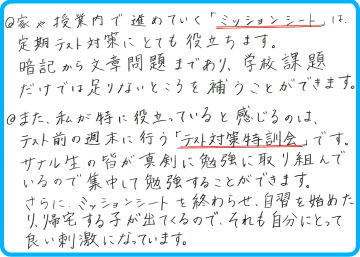 ◎家や授業内で進めていく「ミッションシート」は、
定期テスト対策にとても役立ちます。
暗記から文章問題まであり、学校課題
だけでは足りないところを補うことができます。
◎また、私が特に役立っていると感じるのは、
テスト前の週末に行う「テスト対策特訓会」です。
サナル生の皆が真剣に勉強に取り組んで
いるので集中して勉強することができます。
さらに、ミッションシートを終わらせ、自習を始めた
り、帰宅する子が出てくるので、それも自分にとって
良い刺激になっています。